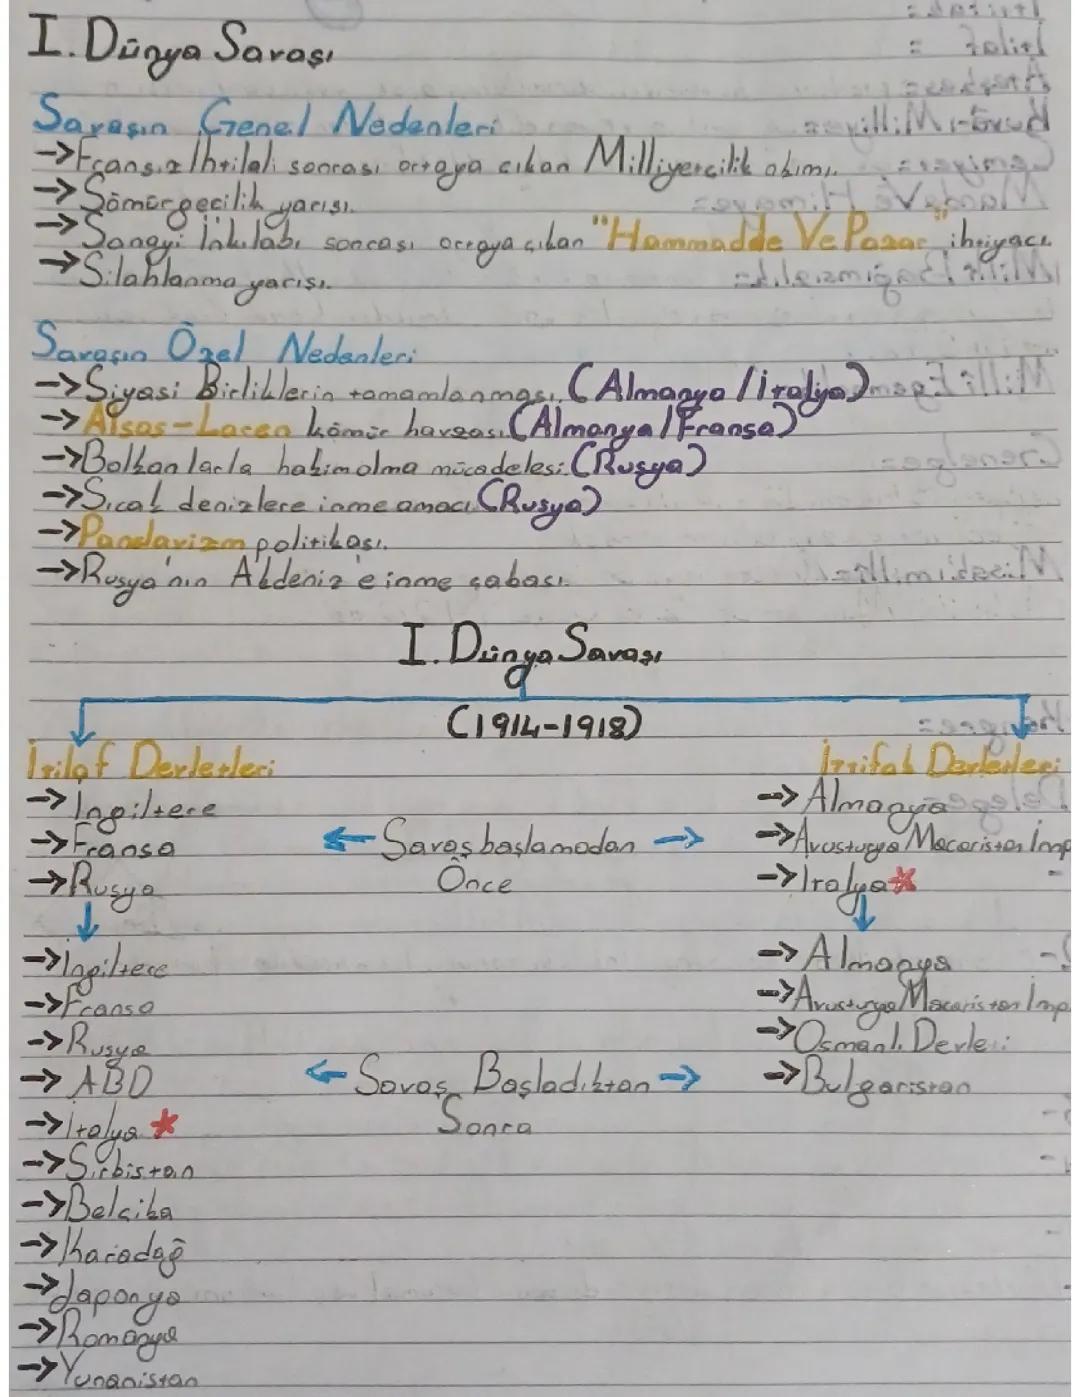 I. Dünya Savaşı
Savaşın Genel Nedenleri
->Fransız İhtilali sonrası ortaya çıkan Milliyetçilik akımı.
->Sömürgecilik yarışı.
->Sanayi İnkılabı sonrası ortaya çıkan "Hammadde Ve Pazar" ihtiyacı
->Silahlanma yarışı.
Savaşın Özel Nedenleri
->Siyasi Birliklerin tamamlanması. (Almanya / İtalya)
->Alsas-Loren kömür havzası. (Almanya / Fransa)
->Balkanlarla hakim olma mücadelesi. (Rusya)
->Sıcak denizlere inme amacı. (Rusya)
->Panslavizm politikası.
->Rusya'nın Akdeniz'e inme çabası.
I. Dünya Savaşı
(1914-1918)
İtilaf Devletleri İttifak Devletleri
->İngiltere ->Almanya
->Fransa <- Savaş başlamadan -> ->Avusturya Macaristan İmp
->Rusya Önce ->İtalya*
->İngiltere ->Almanya
->Fransa ->Avusturya Macaristan İmp.
->Rusya ->Osmanlı Devleti
->ABD <- Savaş Başladıktan -> ->Bulgaristan
->İtalya * Sonra
->Sırbistan
->Belçika
->Karadağ
->Japonya
->Romanya
->Yunanistan